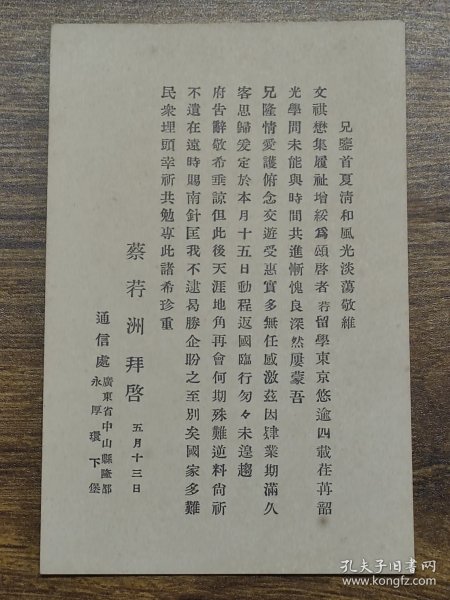 兄鑒首夏淸和風光淡蕩敬維
文祺懋集履祉增綏爲頌啓者若留學東京悠逾四載荏苒韶
光學問未能與時間共進慚愧良深然屢蒙吾
兄隆情愛護俯念交遊受惠實多無任感激茲因肄業期滿久
客思歸爰定於本月十五日動程返國臨行匆々未遑趨
府吿辭敬希垂諒但此後天涯地角再會何期殊難逆料尙祈
不遺在遠時賜南針匡我不逮曷勝企盼之至別矣國家多難
民衆埋頭幸祈共勉專此諸希珍重
蔡若洲拜啓 五月十三日
通信處 廣東省中山縣隆都
永厚環下堡
孔夫子旧书网
www.kongfz.com